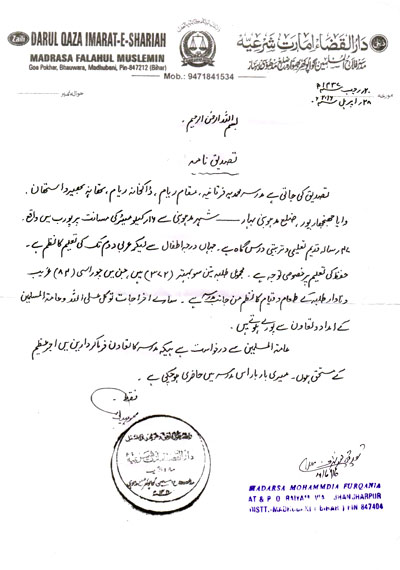 DARUL QAZA IMARAT-E-SHARIAH
MADRASA FALAHUL MUSLEMIN
Goa Pokhar, Bhauwara, Madhubani, Pin-847212 (Bihar)
دار القضاء امارت شرعیہ
Mob.: 9471841534
بسم اللہ الرحمن الرحیم
تصدیق نامہ
تصدیق کی جاتی ہے مدرسہ محمدیہ فرقانیہ، مقام ریام، ڈاکخانہ ریام،
وایا جھنجھارپور، ضلع مدھوبنی بہار شہر مدھوبنی سے کلومیٹر کی مسافت پر پورب میں واقع
سالہ قدیم تعلیمی و تربیتی درس گاہ ہے۔ جہاں درجہ اطفال سے لیکر عربی دوم تک کی تعلیم کا نظم ہے۔
حفظ کی تعلیم پر خصوصی توجہ ہے۔ مجموعی طلبہ تین سو بہتر (۳۷۲) ہیں جن میں چوراسی (۸۴) غریب
و نادار طلبہ کے طعام و قیام کا نظم من جانب مدرسہ ہے۔ سارے اخراجات توکل علی اللہ و عامۃ المسلمین
کے امداد و تعاون سے پورے ہوتے ہیں۔
عامۃ المسلمین سے درخواست ہے کہ مدرسہ کا تعاون فرما کر دارین میں اجر عظیم
کے مستحق ہوں۔ میری بار بار اس مدرسہ میں حاضری ہو چکی ہے۔
فقط
MADARSA MOHAMMDIA FURQANIA
AT & P.O. RAIYAM VIA JHANJHARPUR
DISTT.-MADHUBANI (BIHAR) PIN 847404